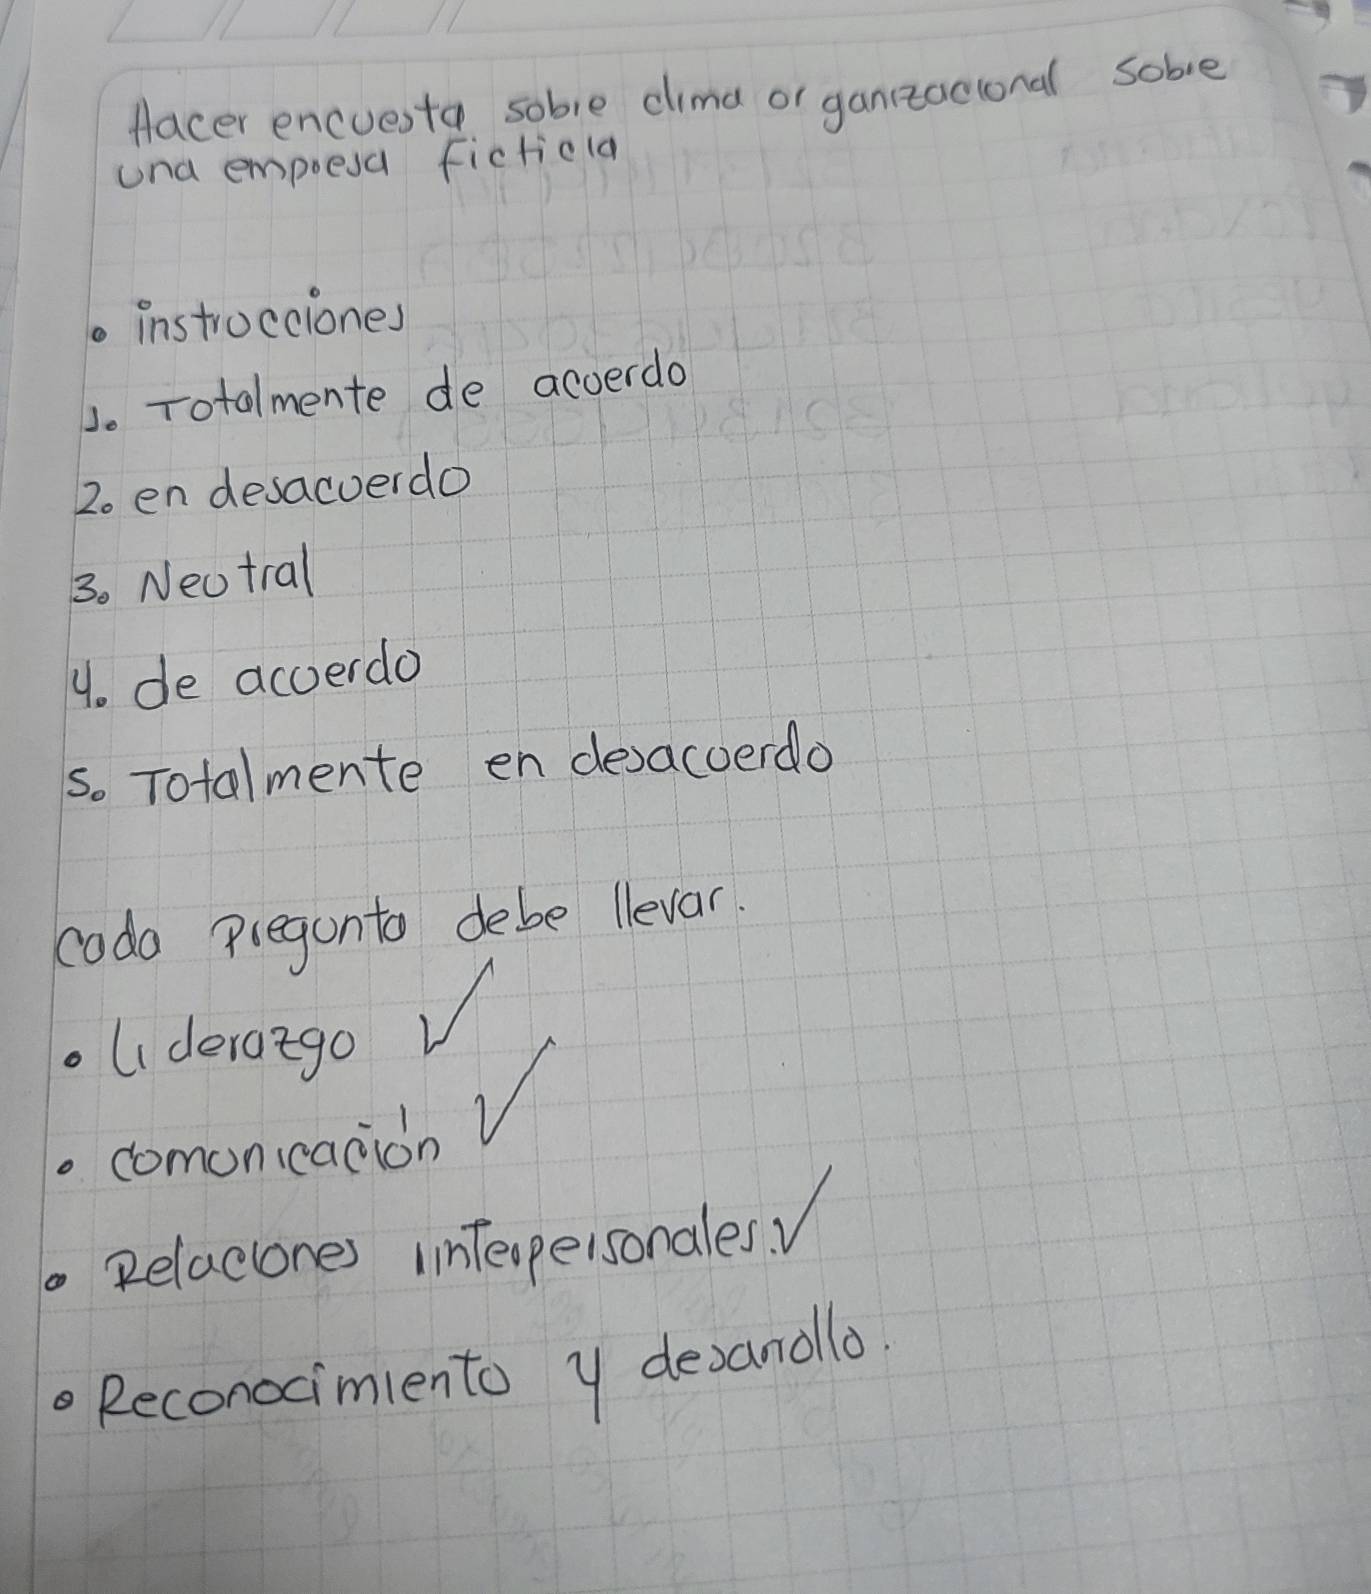 Hacer encuesta sobre clima organizacional sobre
una empresa ficticia
• instrucciones
1. Totalmente de acuerdo
2. en desacuerdo
3. Neutral
4. de acuerdo
5. Totalmente en desacuerdo
cada pregunta debe llevar.
• liderazgo ✓
• comunicación ✓
• Relaciones interpersonales. ✓
• Reconocimiento y desarrollo.